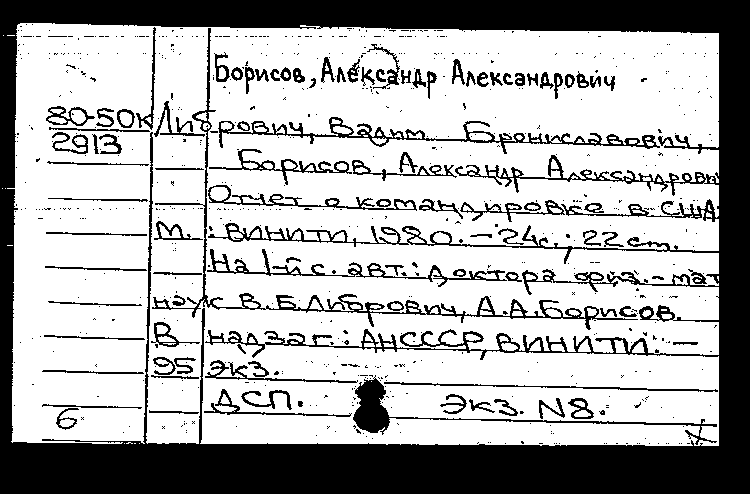 Борисов, Александр Александрович
80-50к Либрович, Вадим Брониславович,
2913
Борисов, Александр Александрови
Отчет о командировке в США.
М. : ВИНИТИ, 1980. - 24с.; 22 см.
На 1-й с. авт.: доктора физ.-мат
наук В.Б.Либрович, А.А.Борисов.
В надзаг.: АН СССР, ВИНИТИ. -
95 экз.
ДСП. Экз. N8.
6